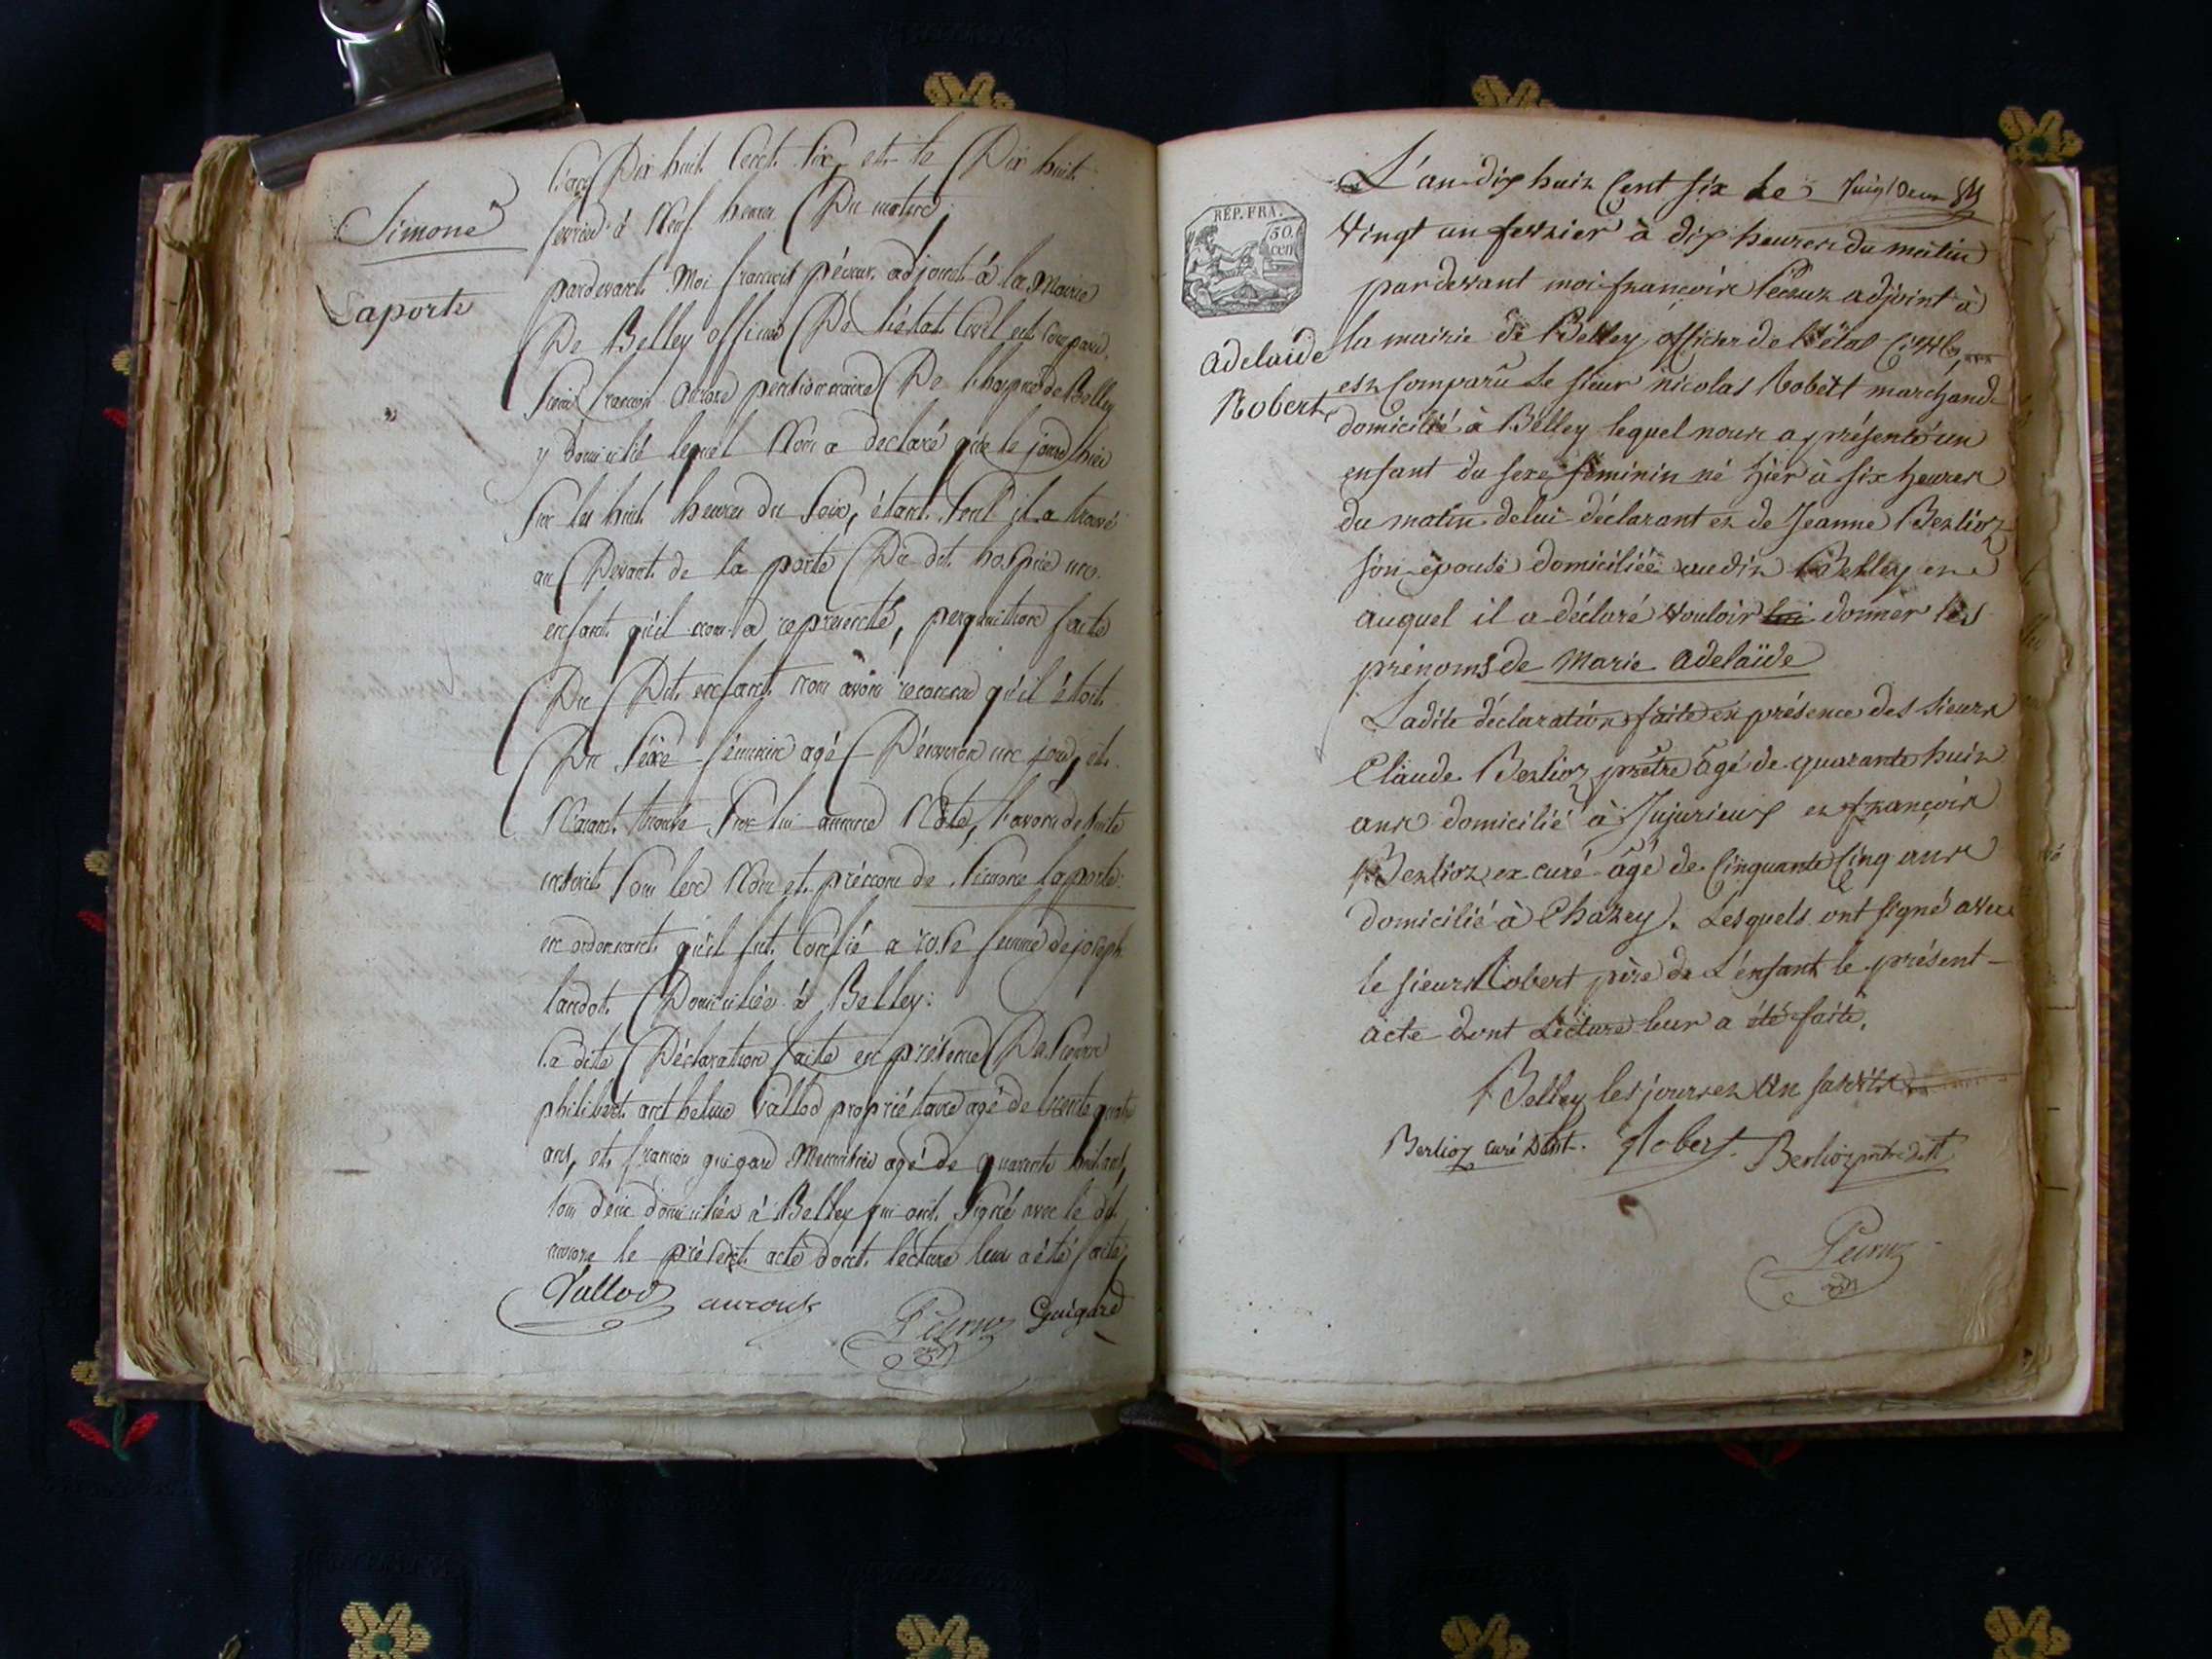 L'an Dix huit Cent Six, et le Dix huit
fevrier à Neuf heures Du matin,
Simone
pardevant Moi francois pécour adjoint à la Mairie
Laporte
De Belley officier De l'état Civil est comparu
francois pentionnaire De l'hospice de Belley
y domicilié lequel Nous a declaré que le jour d'hier
Sur les huit heures du Soir, étant Seul il a trouvé
au Devant de la porte Du dit hospice un
enfant qu'il nous a représenté, perquisition faite
Du Dit enfant nous avons reconnu qu'il étoit
Du Séxe féminin agé D'environ un jour, et
N'ayant trouvé Sur lui aucune Note, l'avons de Suite
inscrit Sous les Nom et prénom de Simone laporte:
en ordonnant qu'il fut Confié a rose femme de joseph
tandot Domiciliée à Belley:
La dite Déclaration faite en présence De Sieurs
philibert anthelme Vallod propriétaire agé de trente quatre
ans, et francois guigard Menuisier agé de quarante huit ans,
tous deux domiciliés à Belley qui ont Signé avec le dit
le présent acte dont lecture leur a été faite,
Vallod
Guigard
L'an dix huit Cent six Le
vingt un fevrier à dix heures du matin
RÉP. FRA.
50.
cen
pardevant moi françois Pécour adjoint à
la mairie de Belley, officier de l'état Civil,
Adelaïde
est Comparu Le sieur nicolas Robert marchand
Robert
domicilié à Belley lequel nous a présenté un
enfant du sexe féminin né hier à six heures
du matin de lui déclarant et de Jeanne Berlioz
son épouse domiciliée audit Belley et
auquel il a déclaré vouloir lui donner les
prénoms de Marie Adelaïde
Ladite déclaration faite en présence des sieurs
Claude Berlioz prêtre âgé de quarante huit
ans domicilié à Jujurieux et françois
Berlioz ex curé âgé de Cinquante Cinq ans
domicilié à Chazey. Lesquels ont signé avec
le sieur Robert père de L'enfant le présent
acte dont Lecture leur a été faite.
Belley les jour et an susdits
Berlioz curé Robert Berlioz